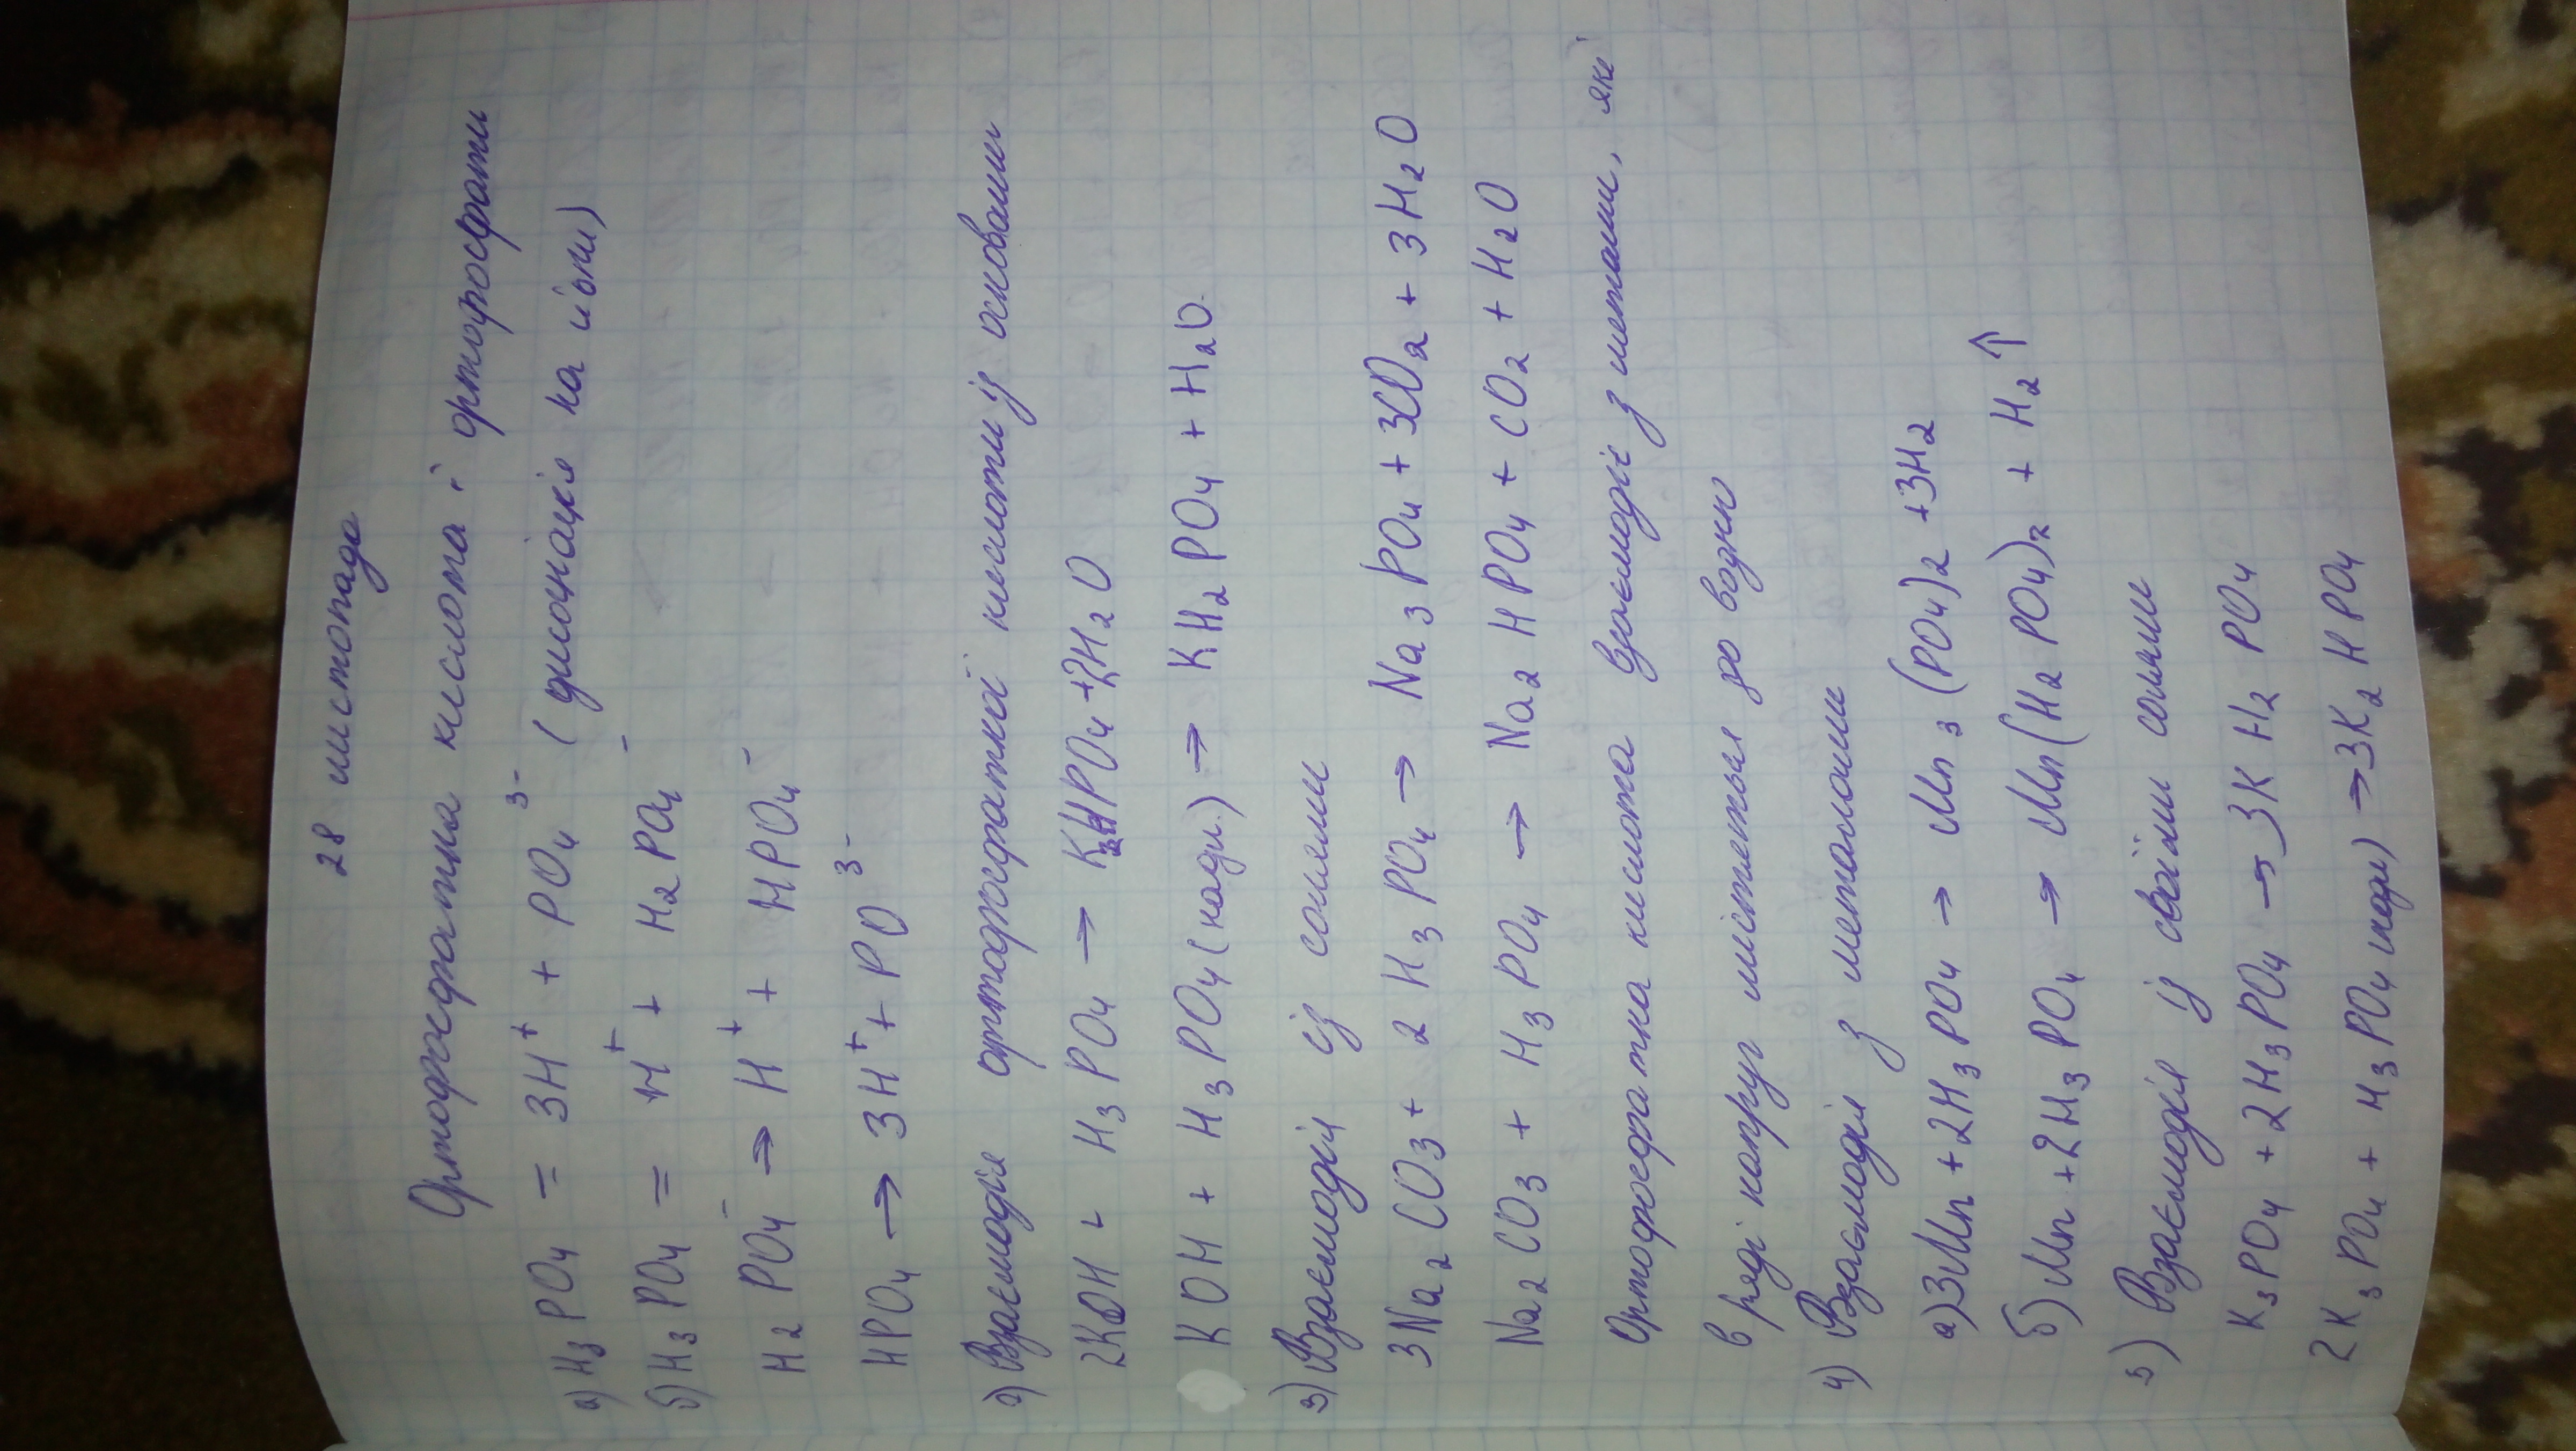 28 листопада
Ортофосфатна кислота і ортофосфати
а) H₃PO₄ = 3H⁺ + PO₄³⁻ (дисоціація на йони)
б) H₃PO₄ = H⁺ + H₂PO₄⁻
H₂PO₄⁻ → H⁺ + HPO₄⁻
HPO₄ → 3H⁺ + PO³⁻
2) Взаємодія ортофосфатної кислоти із основами
2KOH + H₃PO₄ → K₂HPO₄ + 2H₂O
KOH + H₃PO₄ (надл.) → KH₂PO₄ + H₂O
3) Взаємодія із солями
3Na₂CO₃ + 2H₃PO₄ → Na₃PO₄ + 3CO₂ + 3H₂O
Na₂CO₃ + H₃PO₄ → Na₂HPO₄ + CO₂ + H₂O
Ортофосфатна кислота взаємодіє з метами, які
в ряді напруг міститься до водню
4) Взаємодія з металами
а) 3Mn + 2H₃PO₄ → Mn₃(PO₄)₂ + 3H₂
б) Mn + 2H₃PO₄ → Mn(H₂PO₄)₂ + H₂↑
5) Взаємодія із своїми солями
K₃PO₄ + 2H₃PO₄ → 3KH₂PO₄
2K₃PO₄ + H₃PO₄ (надл) → 3K₂HPO₄